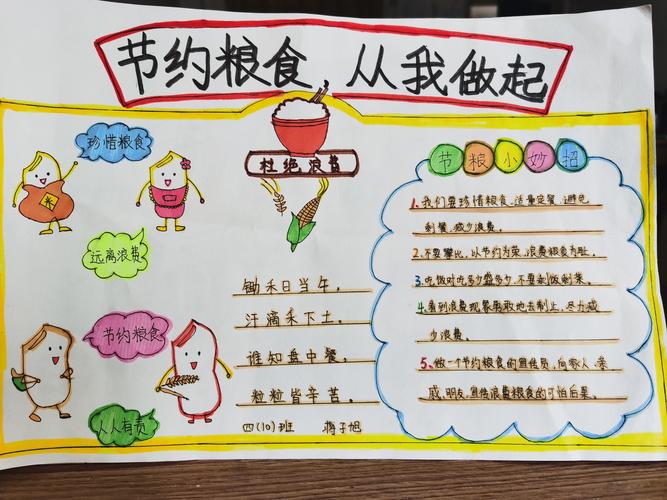 节约粮食，从我做起
珍惜粮食
远离浪费
节约粮食
人人有责
杜绝浪费
米
锄禾日当午，
汗滴禾下土。
谁知盘中餐，
粒粒皆辛苦。
四（10）班 梅子旭
节粮小妙招
1.我们要珍惜粮食，适量定餐，避免
剩餐，减少浪费。
2.不要攀比，以节约为荣，浪费粮食为耻。
3.吃饭时吃多少盛多少，不要剩饭剩菜。
4.看到浪费现象勇敢地去制止，尽力减
少浪费。
5.做一个节约粮食的宣传员，向家人、亲
戚、朋友，宣传浪费粮食的可怕后果。